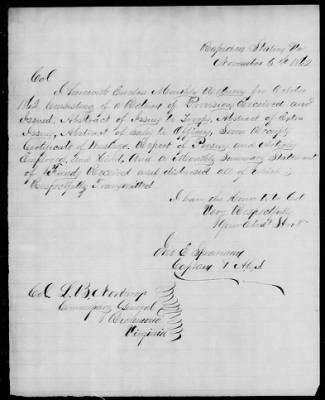 Station Va
November 5th 186
Col
I herewith Enclose Monthly Returns for October
186 Consisting of a Return of Provisions Received and
Issued, Abstract of Issues to Troops, Abstract of Extra
Issues, Abstract of Sales to Officers, Seven Receipts
Certificate of Wastage, Report of Persons and Articles
Employed and Hired, And a Monthly Summary Statement
of Funds Received and disbursed all of which is
Respectfully Transmitted
I have the Honor to be Col
Very Respectfully
Your Obt Servt
E
Captain & A.C.S
Col L. B. Northrop
Commissary General
Richmond
Virginia